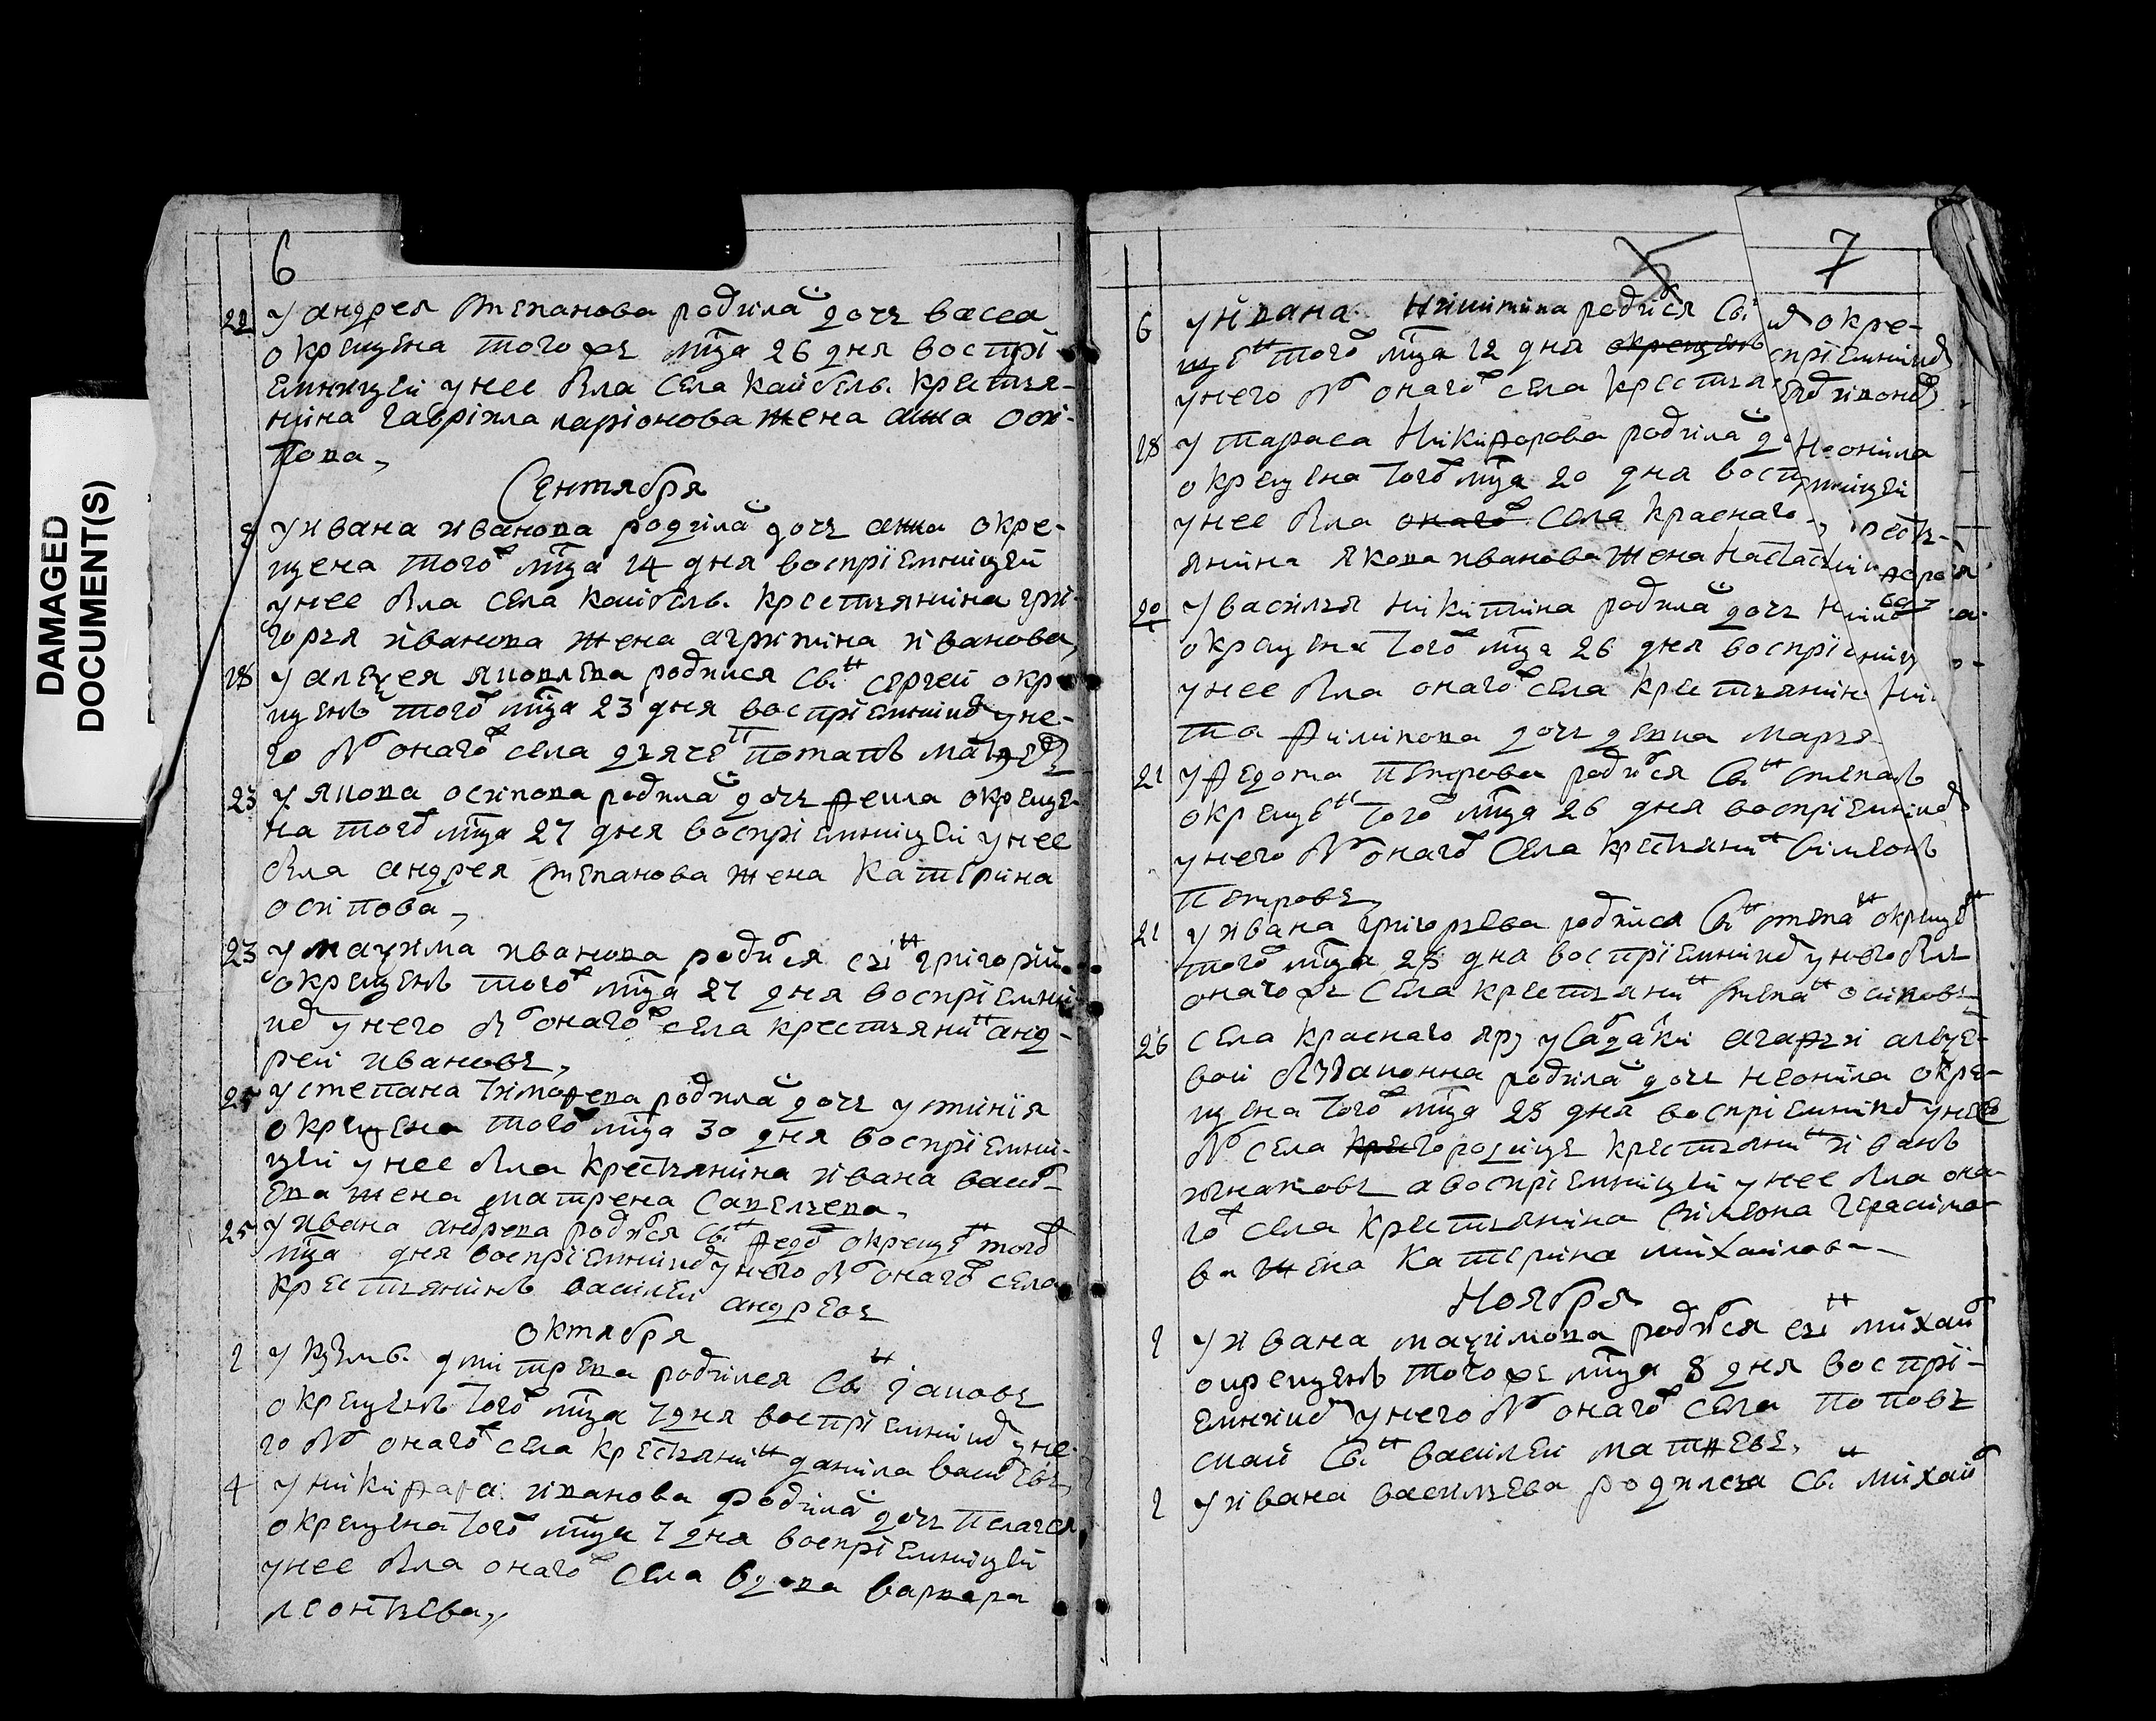 DAMAGED
DOCUMENT(S)
6
22 У андрея степанова родилас дочь васса
окрещена того жъ мца 26 дня воспрі
емницей у нее была села кайбелъ крестья-
нина гавріила ларіонова жена анна осі-
пова,
Сентября
8 У ивана иванова родилас дочь анна окре-
щена того мца 14 дня воспріемницей
у нее была села кайбелъ крестьянина гри-
горья иванова жена агрипина иванова,
18 У алеѯея яковлева родился сынъ сергей окр
щенъ того мца 23 дня воспріемникомъ у не-
го былъ онаго села дьячекъ потапъ матфеевъ
23 У якова осипова родилас дочь фекла окреще-
на того мца 27 дня воспріемницей у нее
была андрея степанова жена катерина
осипова,
23 У маѯима иванова родился сынъ григорій
окрещенъ того мца 27 дня воспріемни-
комъ у него былъ онаго села крестьянинъ анд-
рей ивановъ,
25 У степана тимофева родилас дочь устинія
окрещена того мца 30 дня воспріемни-
цей у нее была крестьянина ивана васил-
ева жена матрена савельева,
25 У ивана андрева родился сынъ федоръ окрещенъ того
мца дня воспріемникомъ у него былъ онаго села
крестьянинъ василей андревъ
Октября
2 У кузмы дмитрева родился сынъ іаковъ
окрещенъ того мца 7 дня воспріемникомъ у не-
го былъ онаго села крестьянинъ данила василевъ,
4 У никифара иванова родилас дочь пелагея
окрещена того мца 7 дня воспріемницей
у нее была онаго села вдова варвара
леонтьева,,
5 7
6 У ивана никитина родился сынъ окре-
щенъ того мца 12 дня окрещенъ спріемникомъ
у него былъ онаго села крестья
18 У тараса никифорова родилас д неонила
окрещена того мца 20 дня восп мницей
у нее была онаго села краснаго рестъ-
янина якова иванова жена настасья
20 У василья никитина родилас дочь
окрещена того мца 26 дня воспріемниц
у нее была онаго села крестьянина ники
та филипова дочь девка марья
21 У федота петрова родился сынъ степанъ
окрещенъ того мца 26 дня воспріемникомъ
у него былъ онаго села крестьянинъ симеонъ
петровъ,
21 У ивана григорьева родился сынъ степанъ окрещенъ
того мца 26 дня воспріемникомъ у него былъ
онаго жъ села крестьянинъ степанъ осиповъ
26 села краснаго яру у салдатки агафьи алеѯе-
вой беззаконна родилас дочь неонила окре-
щена того мца 28 дня воспріемникомъ у нее
былъ села кре городищъ крестьянинъ иванъ
игнатовъ а воспріемницей у нее была она-
го села крестьянина симеона герасимо-
ва жена катерина михайлова
Ноября
2 У ивана маѯимова родился сынъ михаилъ
окрещенъ того жъ мца 8 дня воспрі-
емникомъ у него былъ онаго села поповъ
скай сынъ василей матфеевъ,
2 У ивана васильева родился сынъ михаилъ